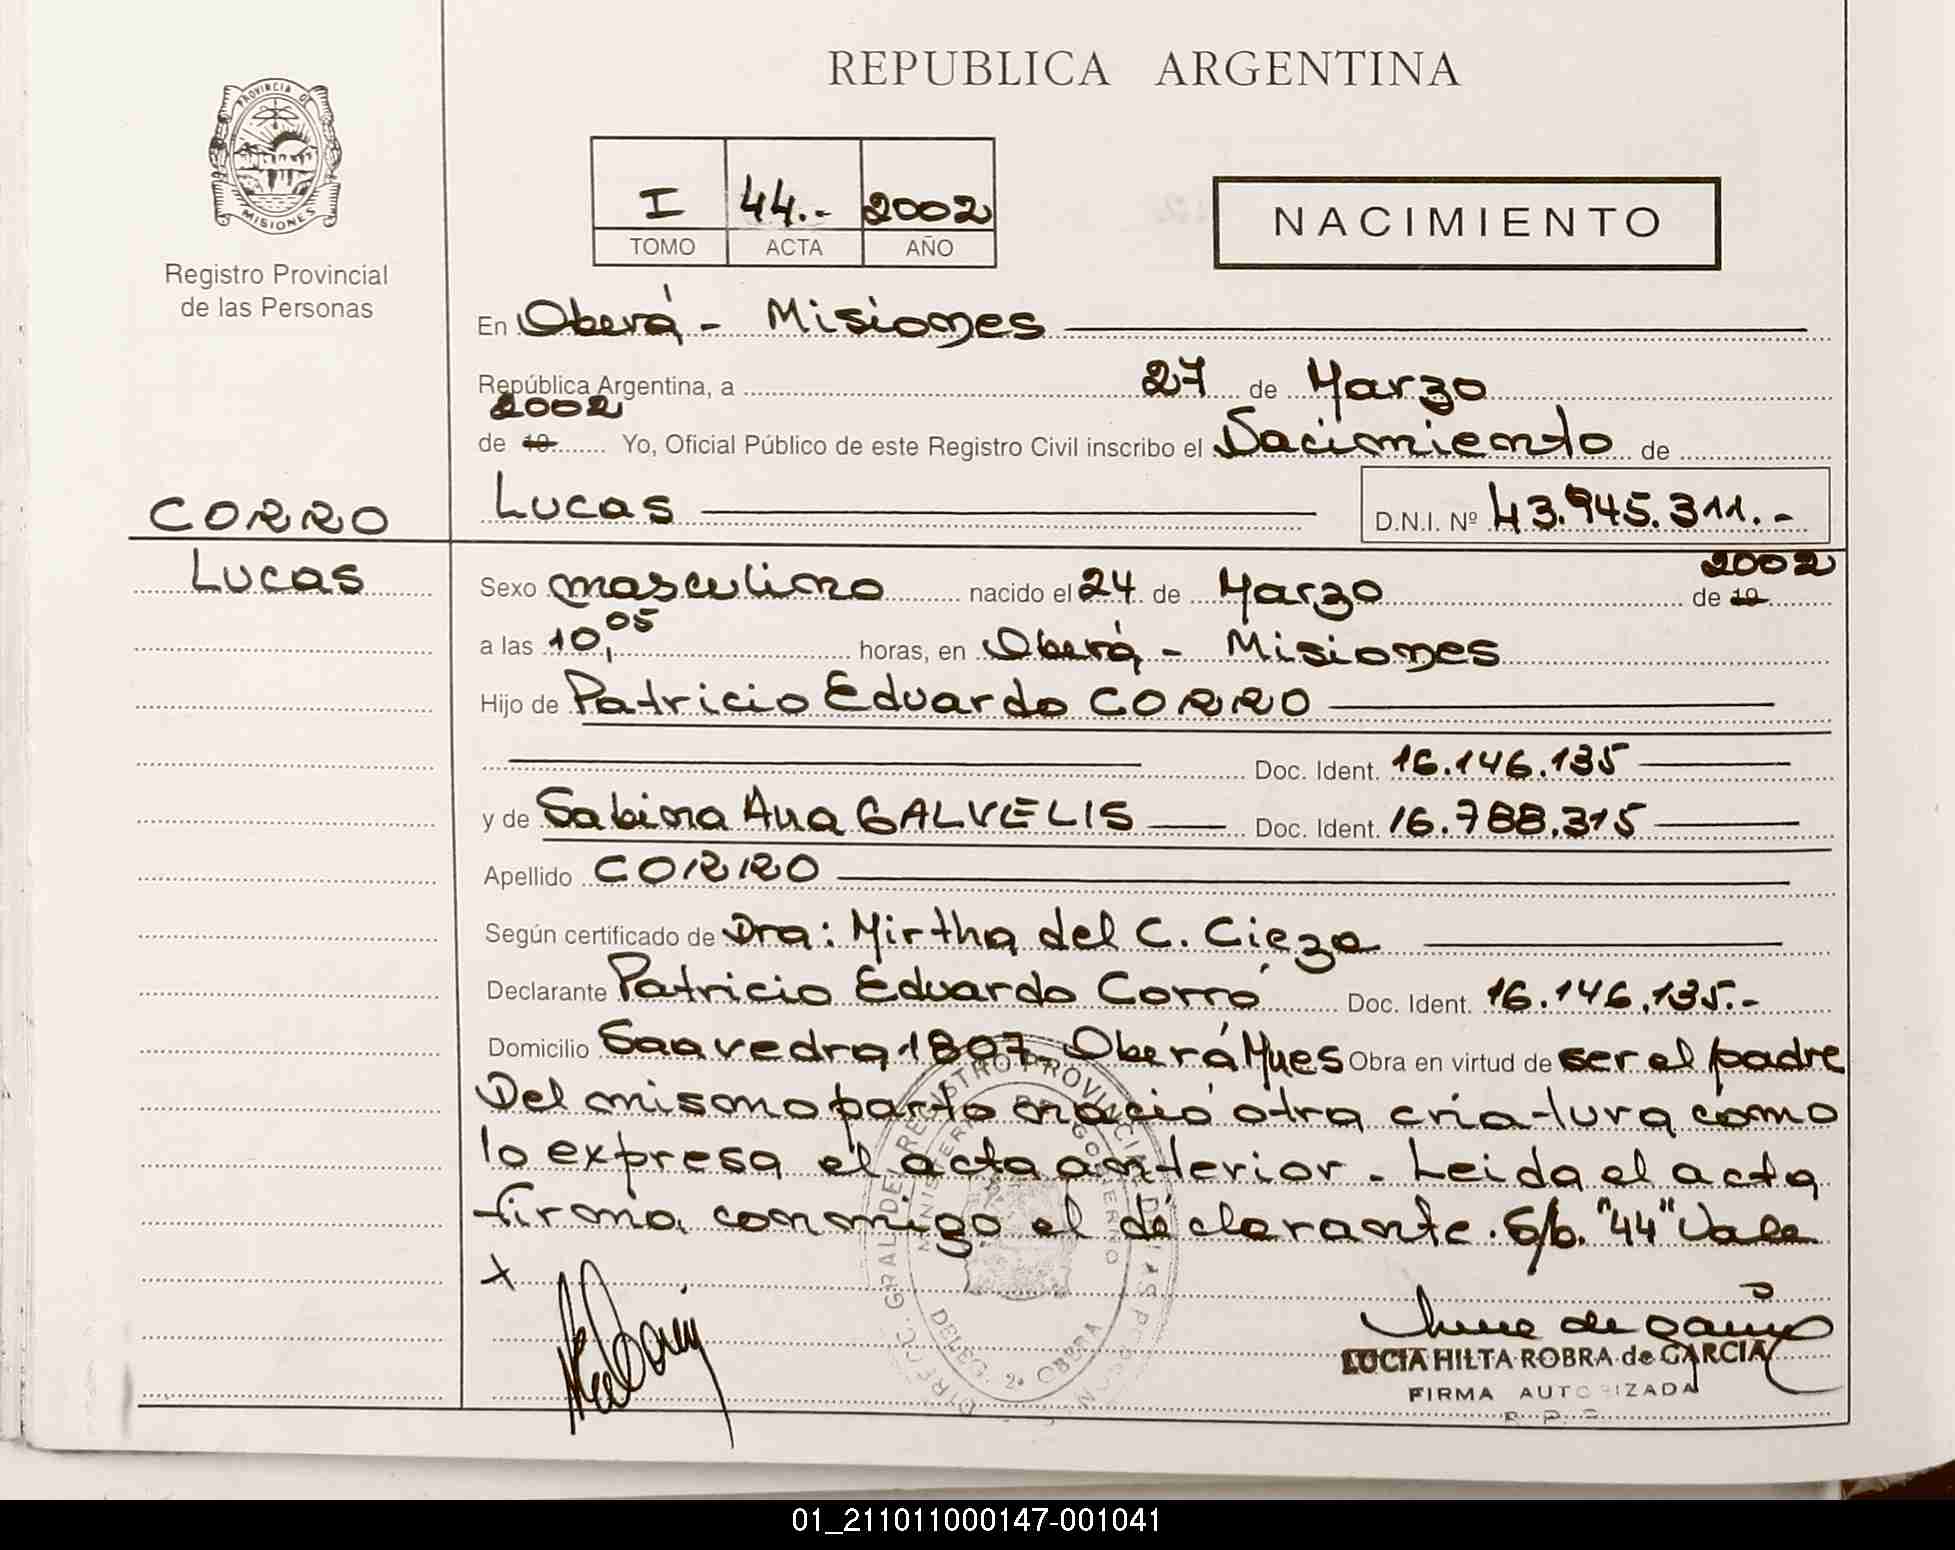 REPUBLICA ARGENTINA
PROVINCIA DE
MISIONES
Registro Provincial
de las Personas
I 44.- 2002
TOMO ACTA AÑO
NACIMIENTO
En Oberá - Misiones
República Argentina, a 27 de Marzo
2002
de 19 Yo, Oficial Público de este Registro Civil inscribo el Nacimiento de
CORRO
Lucas D.N.I. Nº 43.945.311.-
Lucas
2002
Sexo masculino nacido el 24 de Marzo de 19
a las 10,05 horas, en Oberá - Misiones
Hijo de Patricio Eduardo CORRO
Doc. Ident. 16.146.135
y de Sabina Ana GALVELIS Doc. Ident. 16.788.315
Apellido CORRO
Según certificado de Dra: Mirtha del C. Cieza
Declarante Patricio Eduardo Corró Doc. Ident. 16.146.135.-
Domicilio Saavedra 1807. Oberá Mnes Obra en virtud de ser el padre
Del mismo parto nació otra criatura como
lo expresa el acta anterior. - Leida el acta
firma conmigo el declarante. S/b. "44" Vale
x
LUCIA HILTA ROBRA de GARCIA
FIRMA AUTORIZADA
R. P. P.
DIREC. GRAL DE REGISTRO PROVINCIAL DE LAS PERSONAS
MINISTERIO DE GOBIERNO
DELEG. 2ª OBERA
01_211011000147-001041